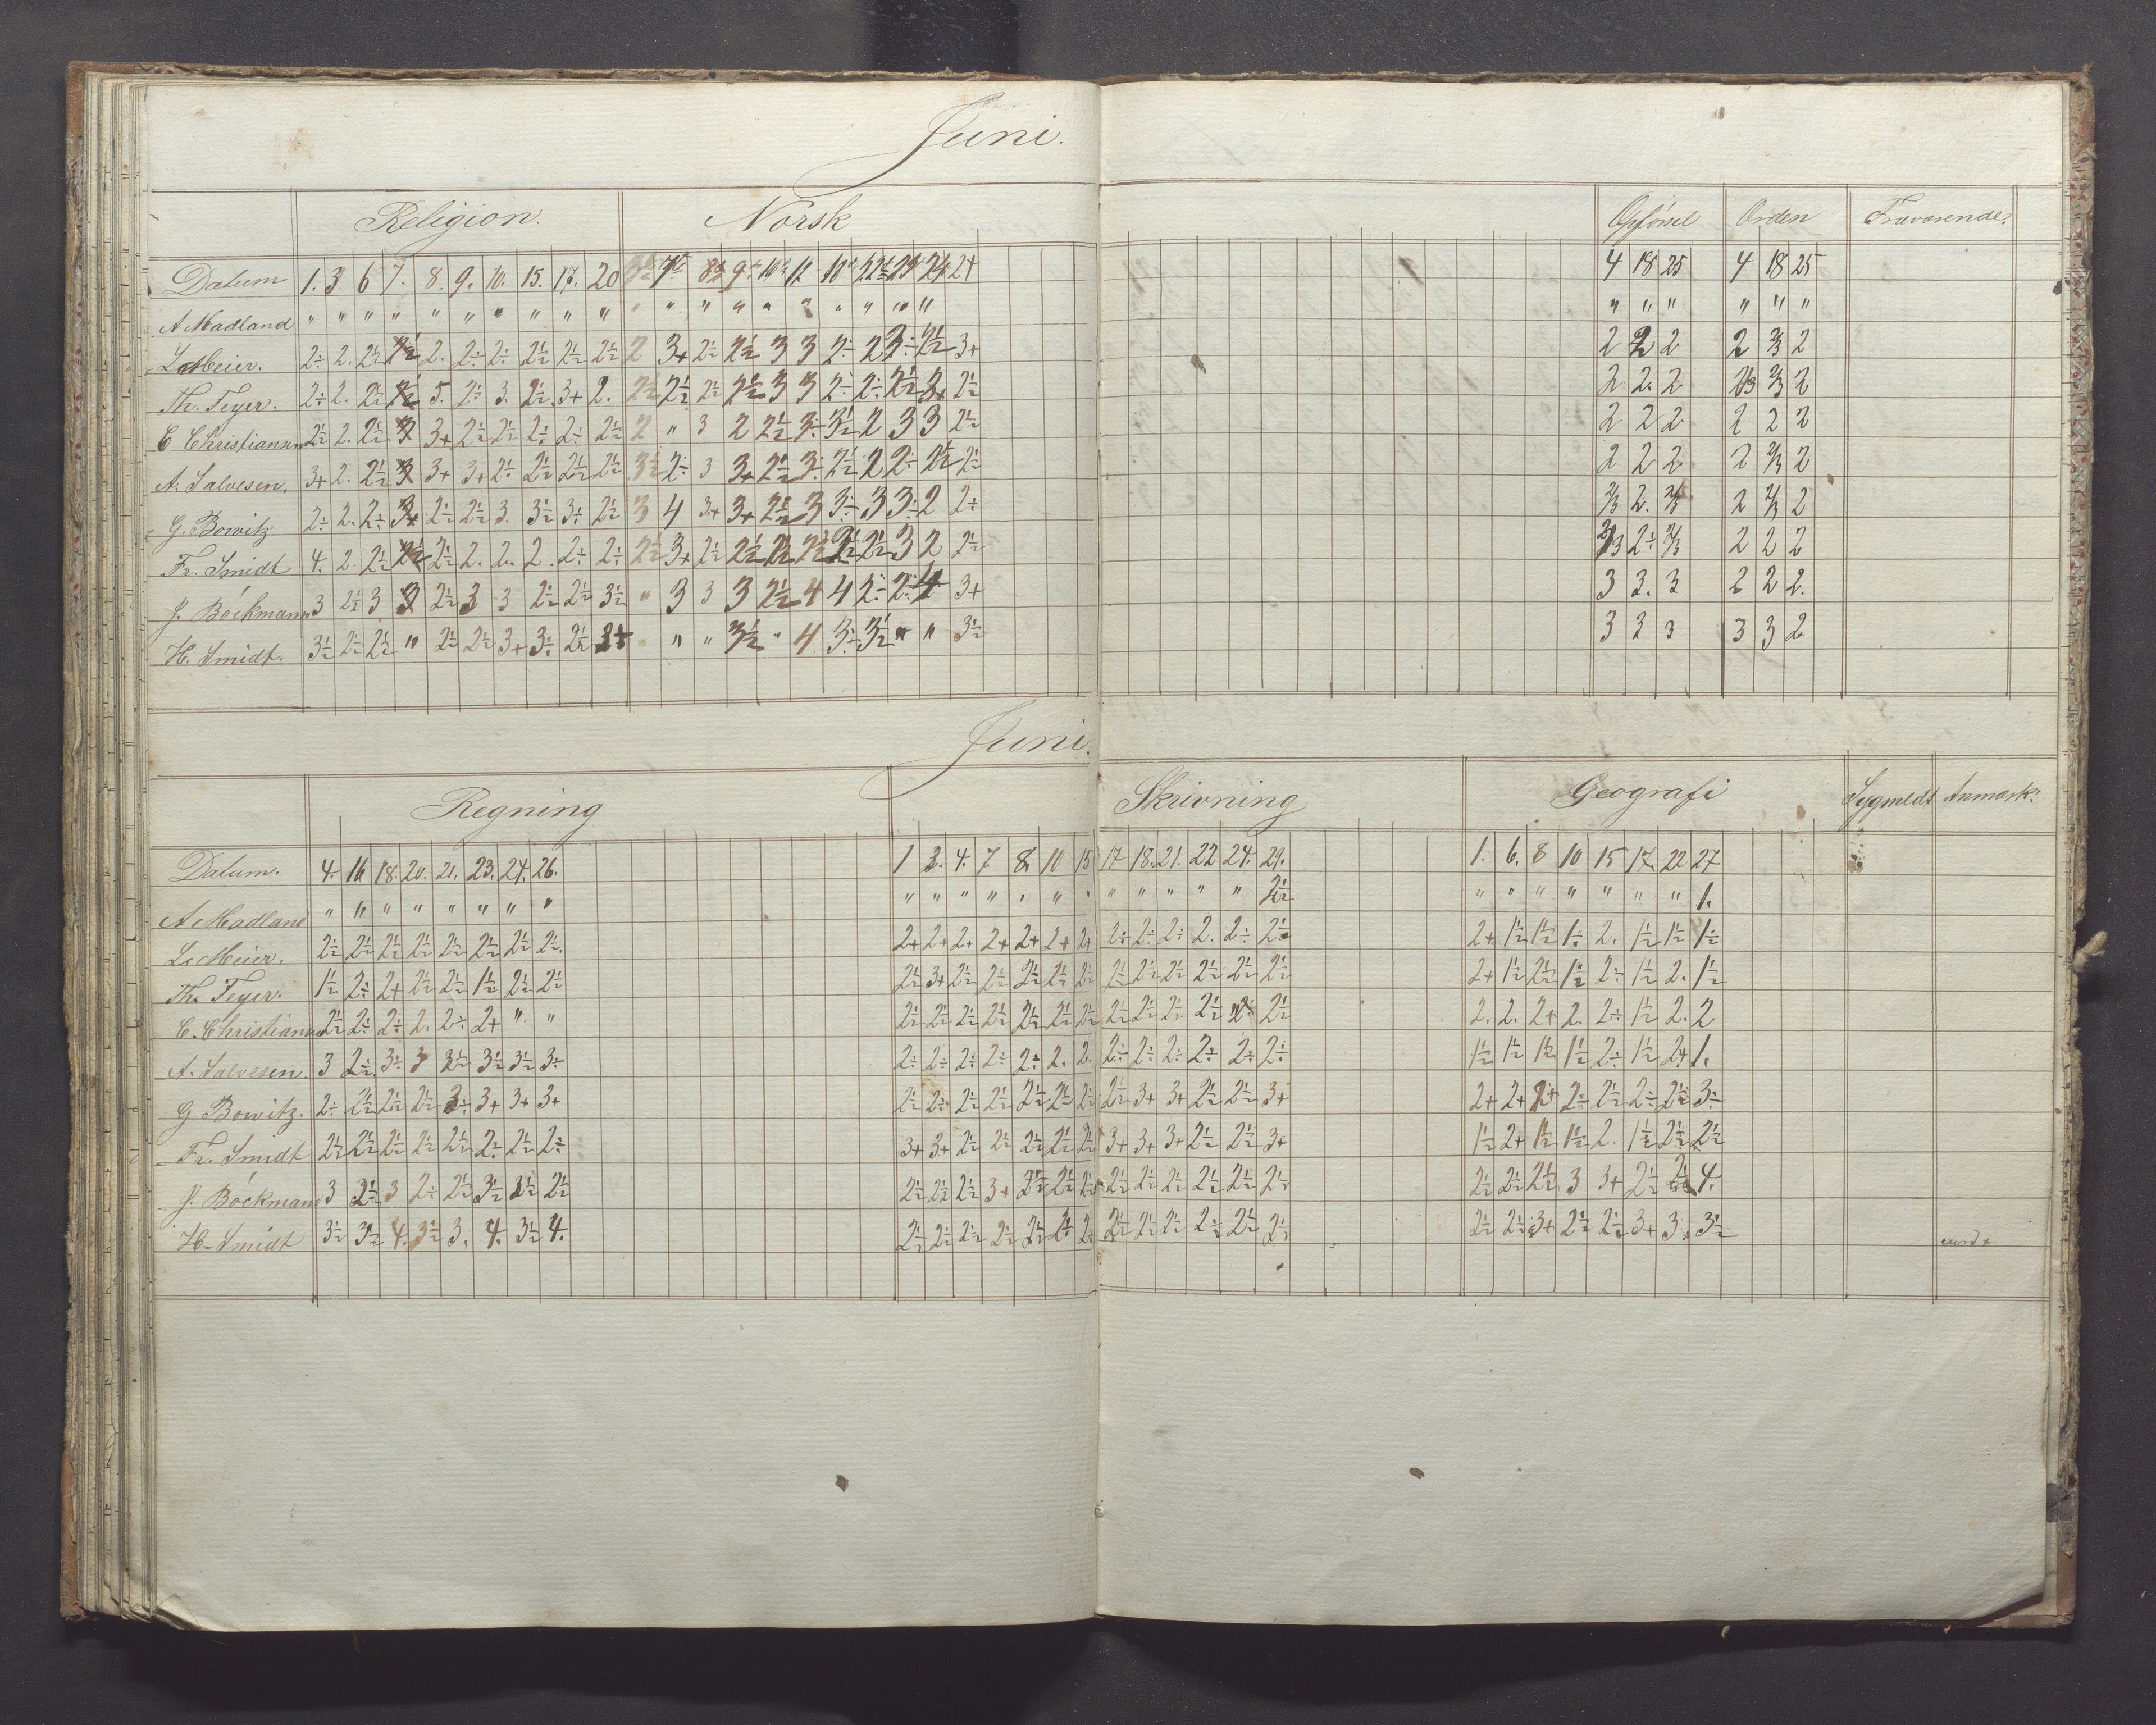 Juni.
Religion. Norsk Opførsel Orden Fraværende.
Datum 1. 3 6 7. 8. 9. 10. 15. 17. 20 4 18 25 4 18 25
A Madland " " " " " " " " " " " " " " " "
L. Meier. 2÷ 2. 2½ 2½ 2. 2÷ 2÷ 2½ 2½ 2½ 2 3+ 2½ 2½ 3 3 2÷ 2 3÷ 2½ 3+ 2 2 2 2 2/3 2
Th. Feyer. 2÷ 2. 2½ 2½ 5. 2÷ 3. 2½ 3+ 2. 2½ 2½ 2½ 2½ 3 3 2÷ 2÷ 2½ 3+ 2½ 2 2. 2 2/3 2/3 2
C Christiansen 2½ 2. 2½ 3 3+ 2½ 2½ 2÷ 2÷ 2½ 2 " 3 2 2½ 3÷ 3½ 2 3 3 2½ 2 2 2 2 2 2
A. Salvesen. 3+ 2. 2½ 3 3+ 3+ 2½ 2½ 2½ 2½ 3½ 2÷ 3 3+ 2½ 3÷ 2½ 2 2÷ 2½ 2½ 2 2 2 2 2/3 2
G. Bowitz 2÷ 2. 2÷ 3+ 2½ 2½ 3. 3½ 3÷ 2½ 3 4 3+ 3+ 2½ 3 3÷ 3 3÷ 2 2÷ 2/3 2. 2/3 2 2/3 2
Fr. Smidt 4. 2. 2½ 2½ 2½ 2. 2. 2. 2÷ 2÷ 2½ 3+ 2½ 2½ 2½ 2½ 2½ 2½ 3 2 2½ 2/3 2÷ 2/3 2 2 2
J. Böckmann 3 2½ 3 3 2½ 3 3 2½ 2½ 3½ " 3 3 3 2½ 4 4 2÷ 2÷ 4 3+ 3 3. 3 2 2 2.
H. Smidt. 3½ 2½ 2½ " 2½ 2½ 3+ 3÷ 2½ 3+ " " 3½ " 4 3÷ 3½ " " 3½ 3 3 3 3 3 2
Juni.
Regning Skrivning Geografi Sygmeldt Anmærk:
Datum. 4. 16 18. 20. 21. 23. 24. 26. 1 3. 4. 7 8 10 15 17 18. 21. 22 24. 29. 1. 6. 8 10 15 17. 22 27
A Madland " " " " " " " " " " " " " " " " " " " " 2½ " " " " " " " 1.
L. Meier. 2½ 2½ 2½ 2½ 2½ 2½ 2½ 2½ 2+ 2+ 2+ 2+ 2+ 2+ 2+ 2÷ 2÷ 2÷ 2. 2÷ 2½ 2+ 1½ 1½ 1÷ 2. 1½ 1½ 1½
Th. Feyer. 1½ 2÷ 2+ 2½ 2½ 1½ 2½ 2½ 2½ 3+ 2½ 2½ 2½ 2½ 2½ 2½ 2½ 2½ 2½ 2½ 2½ 2+ 1½ 2½ 1½ 2÷ 1½ 2. 1½
C. Christiansen 2½ 2÷ 2÷ 2. 2÷ 2+ " " 2½ 2½ 2½ 2½ 2½ 2½ 2½ 2½ 2½ 2½ 2½ 2½ 2. 2. 2+ 2. 2÷ 1½ 2. 2
A. Salvesen. 3 2÷ 3÷ 3 3½ 3½ 3½ 3÷ 2÷ 2÷ 2÷ 2÷ 2÷ 2. 2. 2÷ 2÷ 2÷ 2÷ 2÷ 2÷ 1½ 1½ 1½ 1½ 2÷ 1½ 2+ 1.
G Bowitz. 2÷ 2½ 2½ 2½ 3÷ 3+ 3+ 3+ 2½ 2÷ 2½ 2½ 2½ 2½ 2½ 2½ 3+ 3+ 2½ 2½ 3+ 2+ 2+ 2+ 2÷ 2½ 2÷ 2½ 3÷
Fr. Smidt 2½ 2½ 2½ 2½ 2½ 2÷ 2½ 2÷ 3+ 3+ 2½ 2½ 2½ 2½ 2½ 3+ 3+ 3+ 2½ 2½ 3+ 1½ 2+ 1½ 1½ 2. 1½ 2½ 2½
J. Böckmann 3 2½ 3 2÷ 2½ 3½ 3½ 2½ 2½ 2½ 2½ 3+ 2½ 2½ 2½ 2½ 2½ 2½ 2½ 2½ 2½ 2½ 2½ 2½ 3 3+ 2½ 4.
H. Smidt 3½ 3½ 4. 3½ 3. 4. 3½ 4. 2½ 2½ 2½ 2½ 2½ 2½ 2½ 2½ 2½ 2½ 2½ 2½ 2½ 2½ 2½ 3+ 2½ 2½ 3+ 3. 3½